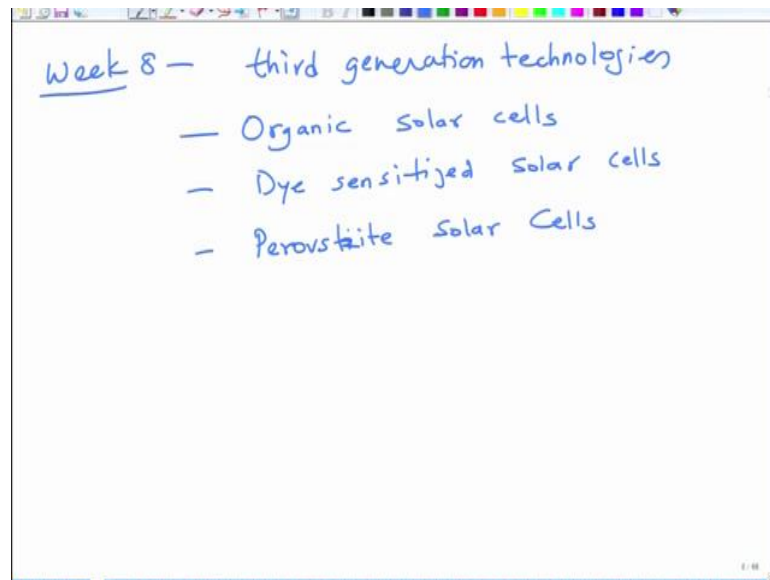 Week 8 - third generation technologies
- Organic solar cells
- Dye sensitized solar cells
- Perovskite Solar Cells